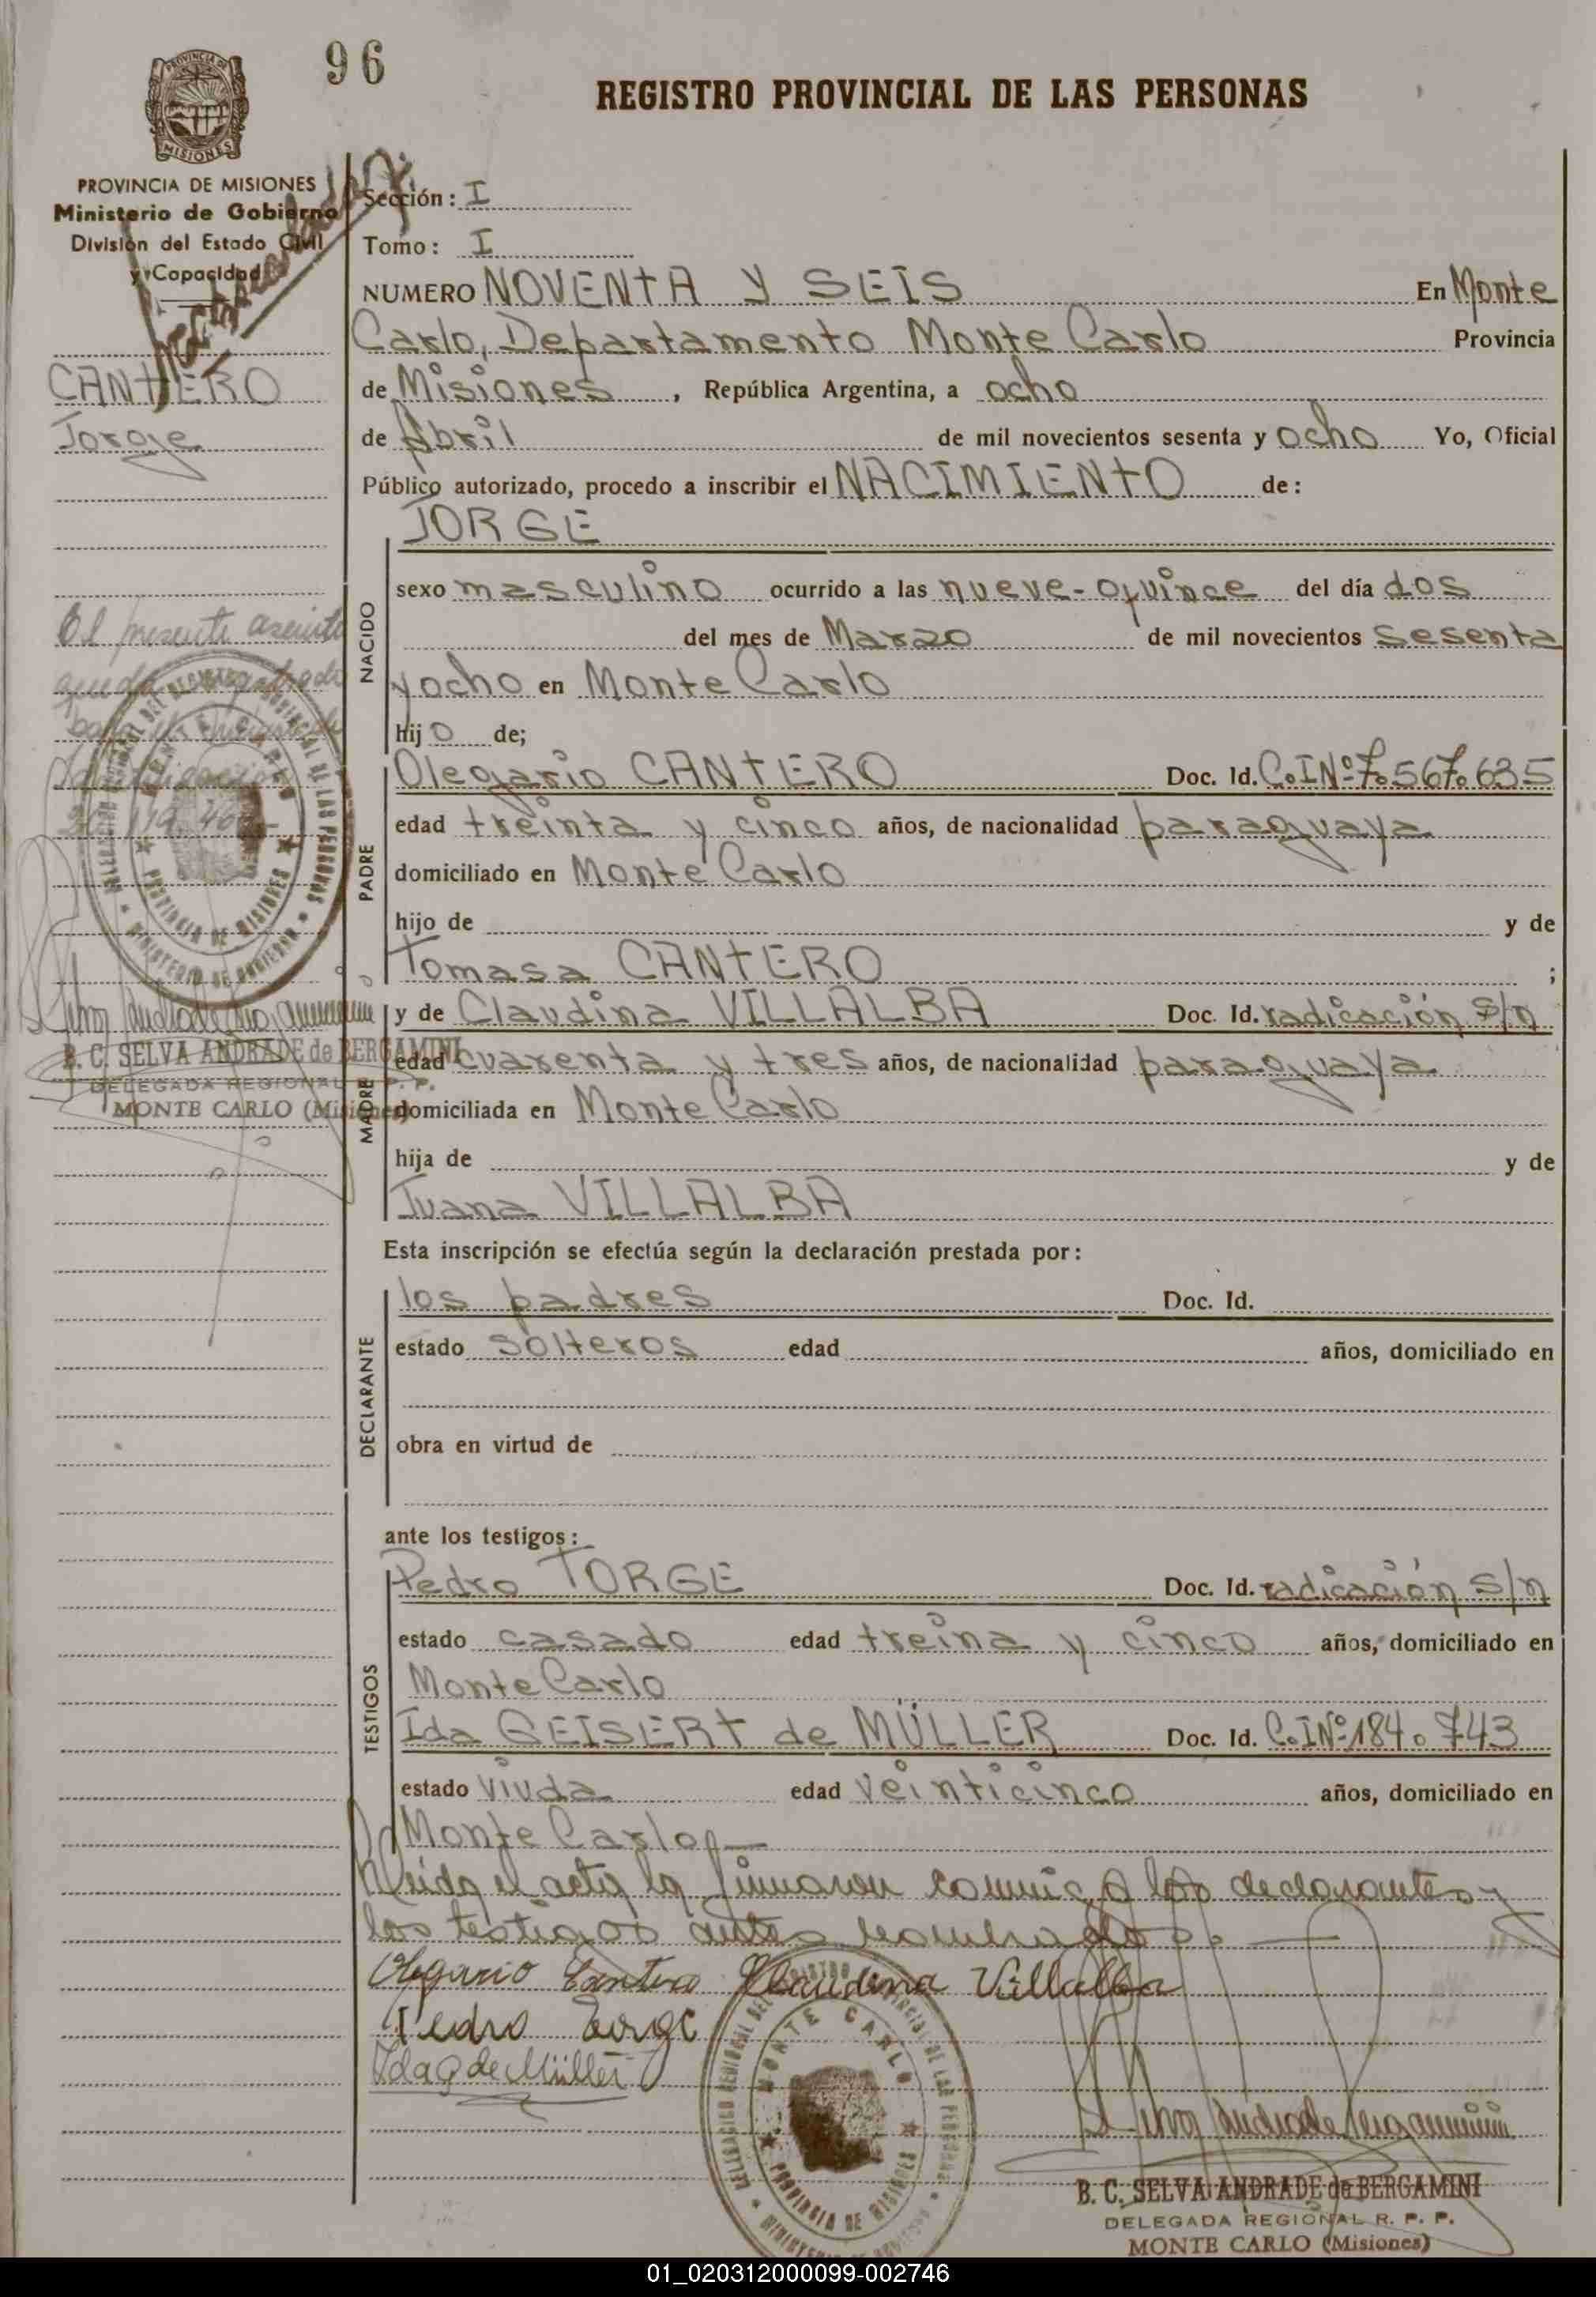 96
REGISTRO PROVINCIAL DE LAS PERSONAS
PROVINCIA DE MISIONES
Ministerio de Gobierno
División del Estado Civil
y Capacidad
CANTERO
Jorge
El presente asiento
queda
bajo el
Identificación
20.119.46
B. C. SELVA ANDRADE de BERGAMINI
DELEGADA REGIONAL R. P. P.
MONTE CARLO (Misiones)
Sección: I
Tomo: I
NUMERO NOVENTA Y SEIS En Monte
Carlo, Departamento Monte Carlo Provincia
de Misiones, República Argentina, a ocho
de Abril de mil novecientos sesenta y ocho Yo, Oficial
Público autorizado, procedo a inscribir el NACIMIENTO de:
JORGE
NACIDO
sexo masculino ocurrido a las nueve-quince del día dos
del mes de Marzo de mil novecientos sesenta
y ocho en Monte Carlo
hijo de;
PADRE
Olegario CANTERO Doc. Id. C.I.Nº 7.567.635
edad treinta y cinco años, de nacionalidad paraguaya
domiciliado en Monte Carlo
hijo de y de
Tomasa CANTERO ;
MADRE
y de Claudina VILLALBA Doc. Id. radicación s/n
edad cuarenta y tres años, de nacionalidad paraguaya
domiciliada en Monte Carlo
hija de y de
Juana VILLALBA
Esta inscripción se efectúa según la declaración prestada por:
DECLARANTE
los padres Doc. Id.
estado solteros edad años, domiciliado en
obra en virtud de
ante los testigos:
TESTIGOS
Pedro TORGE Doc. Id. radicación s/n
estado casado edad treina y cinco años, domiciliado en
Monte Carlo
Ida GEISERT de MÜLLER Doc. Id. C.I.Nº 184.743
estado viuda edad veinticinco años, domiciliado en
Monte Carlo.-
Leída el acta la firmaron conmigo los declarantes y
los testigos antes nombrados.
Olegario Cantero Claudina Villalba
Pedro Torge
Ida G de Müller
DELEGACION REGIONAL DEL REGISTRO PROVINCIAL DE LAS PERSONAS
MONTE CARLO
PROVINCIA DE MISIONES
MINISTERIO DE GOBIERNO
B. C. SELVA ANDRADE de BERGAMINI
DELEGADA REGIONAL R. P. P.
MONTE CARLO (Misiones)
01_020312000099-002746